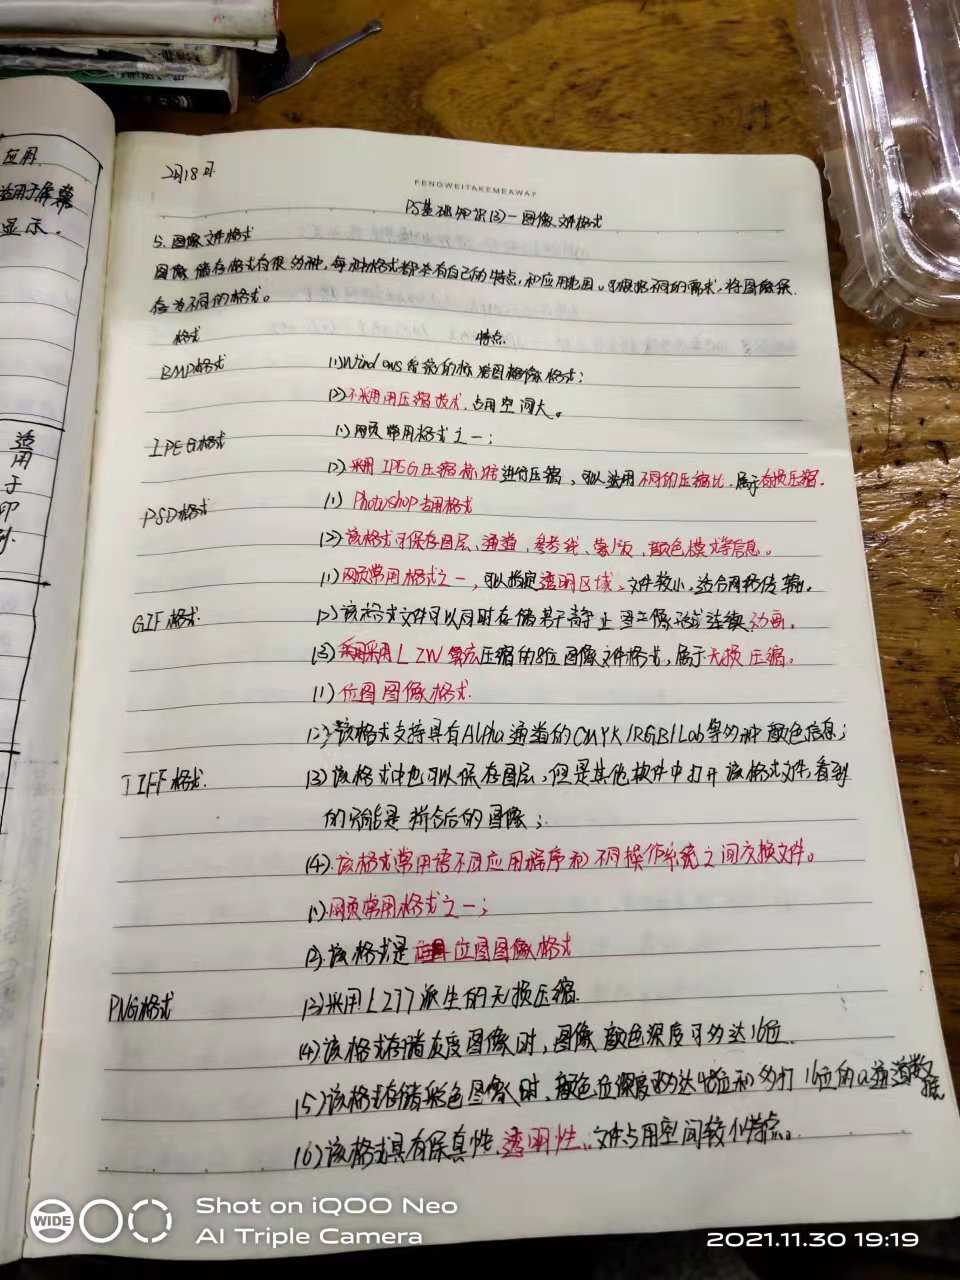 应用
适用于屏幕
显示。
适
用
于
印
2月18日.
FENGWEITAKEMEAWAY
PS基础知识(3)—图像文件格式
5. 图像文件格式
图像储存格式有很多种,每种格式都本有自己的特点,和应用范围。可根据不同的需求,将图像保
存为不同的格式。
格式 特点
BMP格式 (1)Windows系统的标准图像格式;
(2)不采用用压缩技术,占用空间大。
JPEG格式 (1)网页常用格式之一;
(2)采用JPEG压缩标准进行压缩,可以选用不同的压缩比,属于有损压缩.
PSD格式 (1)Photoshop专用格式
(2)该格式可保存图层、通道、参考线、蒙版、颜色模式等信息。
(1)网页常用格式之一,可以指定透明区域,文件较小,适合网络传输.
GIF格式. (2)该格式文件可以同时存储若干静止图像形成连续动画.
(3)采用LZW算法压缩的8位图像文件格式,属于无损压缩.
(1)位图图像格式.
(2)该格式支持具有Alpha通道的CMYK/RGB/Lab等多种颜色信息;
TIFF格式. (3)该格式中也可以保存图层,但是其他软件中打开该格式文件,看到
的只能是拼合后的图像;
(4).该格式常用语不同应用程序和不同操作系统之间交换文件。
(1).网页常用格式之一;
(2).该格式是位图图像格式
PNG格式 (3)采用LZ77派生的无损压缩.
(4)该格式存储灰度图像时,图像颜色深度可多达16位.
(5)该格式存储彩色图像时,颜色位深度可多达48位和多打16位的α通道数据
(6)该格式具有保真性、透明性、文件占用空间较小特点。
WIDE
Shot on iQOO Neo
AI Triple Camera
2021.11.30 19:19